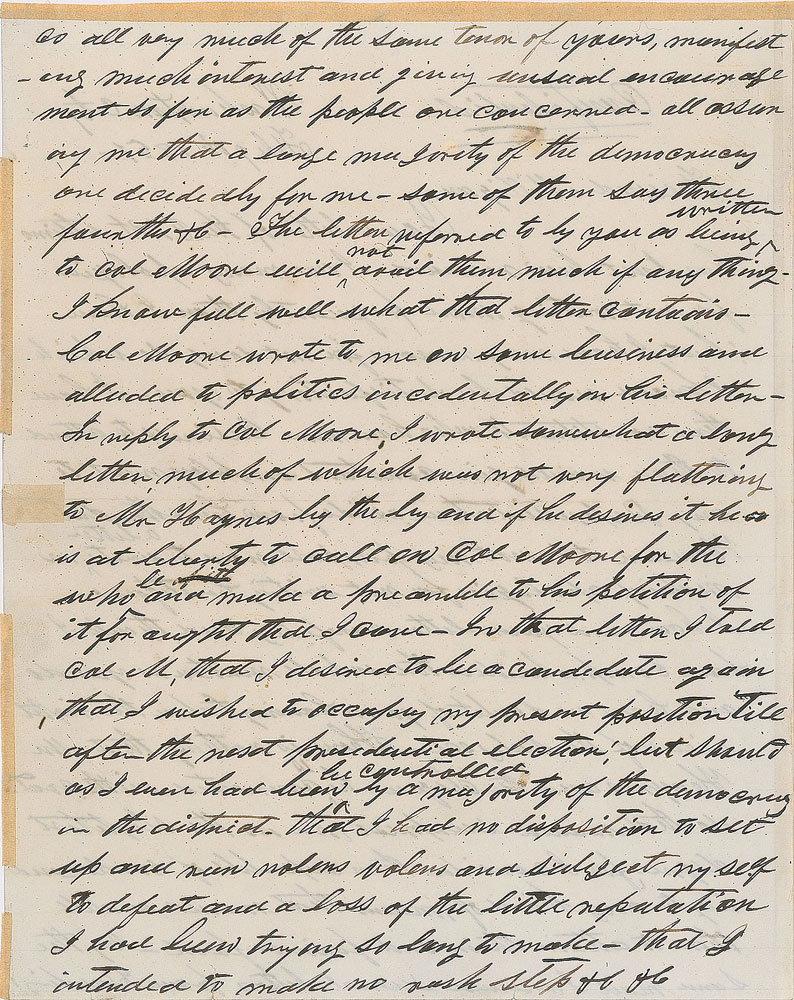 co all very much of the same tenor of yours, manifest
-ing much interest and giving unsual encourage
ment so far as the people are concerned - all assur
ing me that a large majority of the democracy
are decidedly for me - some of them say three
fourths &c - The letter referred to by you as being written
to Col Moore will not avail them much if any thing -
I know full well what that letter contains -
Col Moore wrote to me on some business and
alluded to politics incedentally in his letter -
In reply to Col Moore, I wrote somewhat a long
letter, much of which was not very flattering
to Mr Haynes by the by and if he desires it he
is at liberty to call on Col Moore for the
whole and make a preamble to his petition of
it for aught that I care - In that letter I told
Col M, that I desired to be a candedate again
that I wished to occupy my present position till
after the next presedential election, but should
as I ever had been be controlled by a majority of the democracy
in the district. that I had no disposition to set
up and run nolens volens and subject my self
to defeat and a loss of the little reputation
I had been trying so long to make - that I
intended to make no rash step &c &c